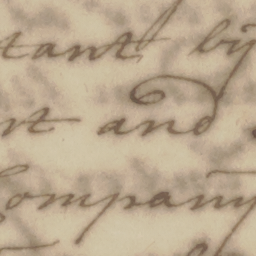 tant by
rt and
Company